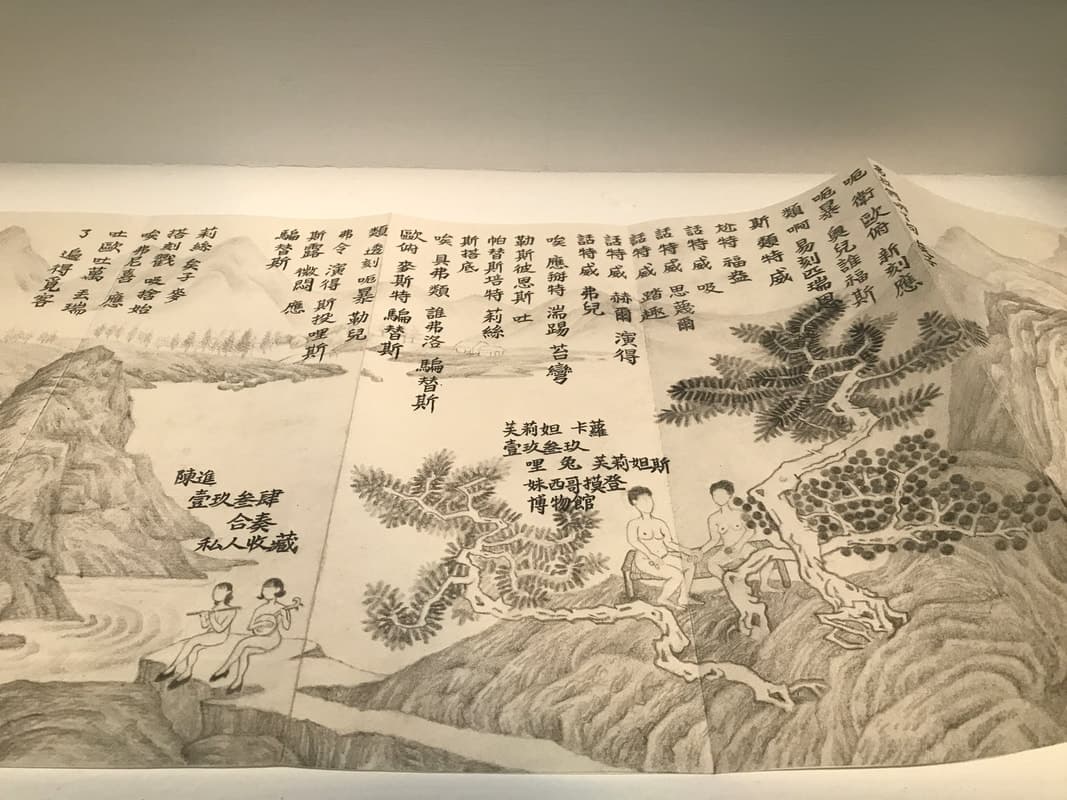 呃 衛 歐俯 新刻應
呃暴 奧兒誰福斯
類 啊易刻匹瑞恩
斯 類特 威
尬特 福益
話特 威 吸
話特威 思蔑爾
話特威 踏趣
話特威 赫爾 演得
話特威 弗兒
唉 應掰特 湍踢 苔彎
勒斯彼恩斯 吐
帕替斯培特 莉絲
斯搭底
唉 具弗類 誰弗洛 騙替斯
歐俯 麥斯特 騙替斯
類邊刻 呃暴 勒兒
弗令 演得 斯挨哩斯
斯露 微悶 應
騙替斯
莉絲 矣子 麥
搭刻戳 吸捨始
唉弗尼喜 應
吐歐吐萬 丟瑞
了 遍得覓客
芙莉妲 卡蘿
壹玖叁玖
哩 兔 芙莉妲斯
妹西哥摸登
博物館
陳進
壹玖叁肆
合奏
私人收藏